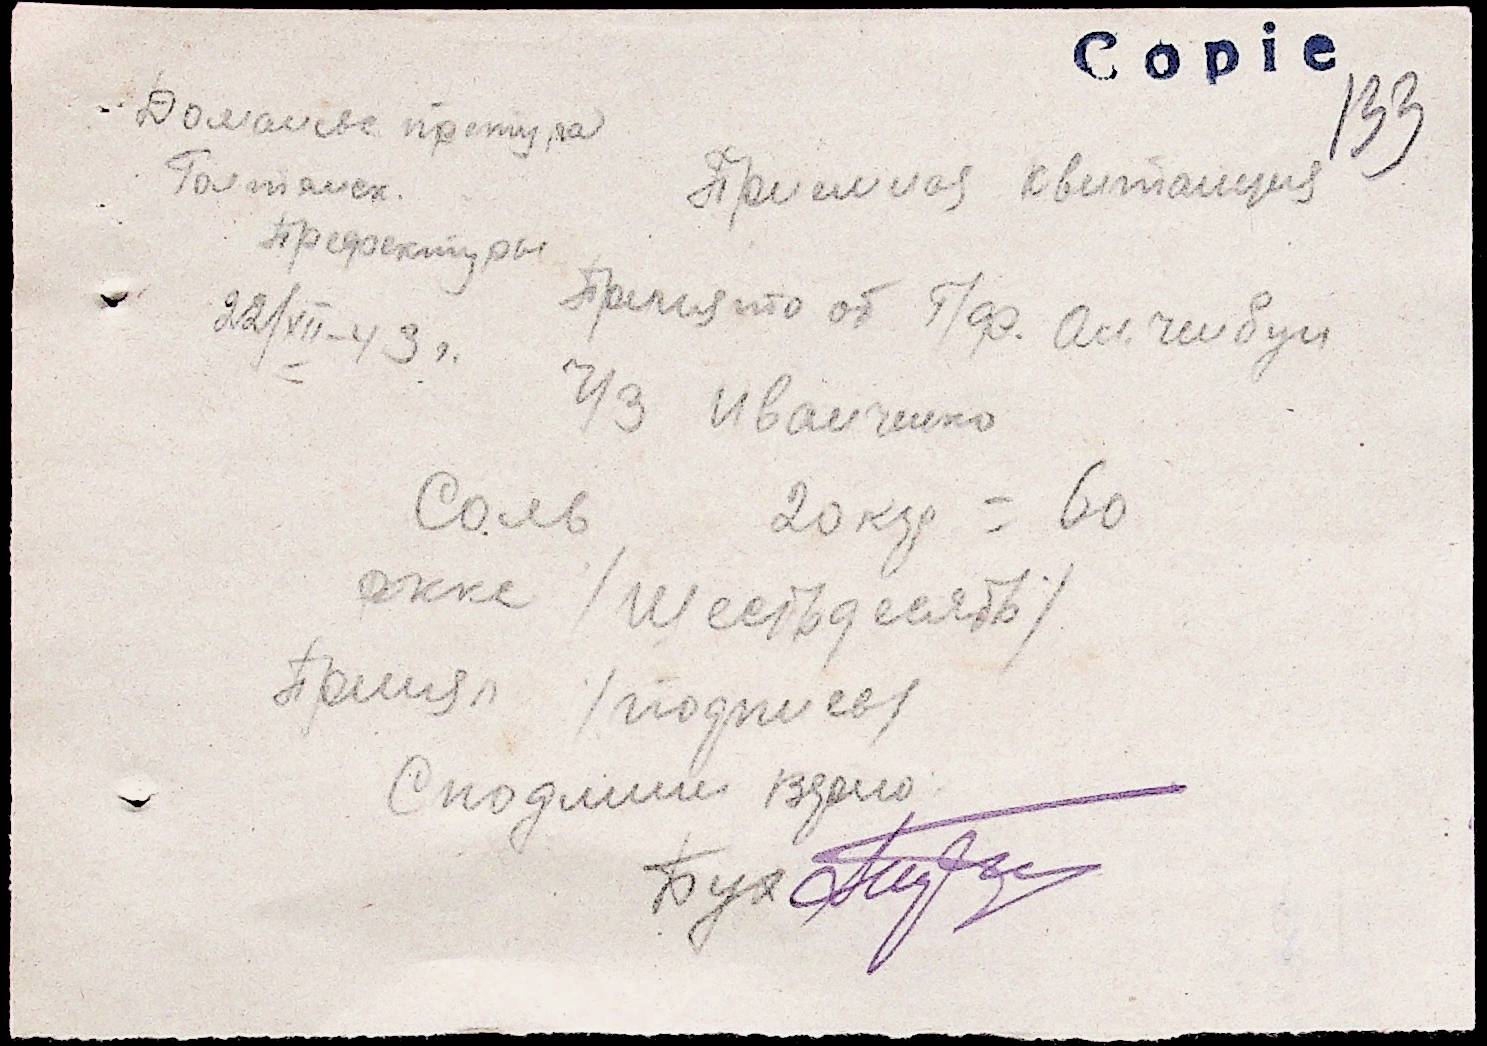 Copie
133
Доманев претура
Голтянск.
Префектуры
22/XII-43 г.
Приемная квитанция
Принято от П/ф.
Ч/З Иванченко
Соль 20 кгр = 60
/Шестьдесять/
Принял /подпись/
С подлин верно:
Бух